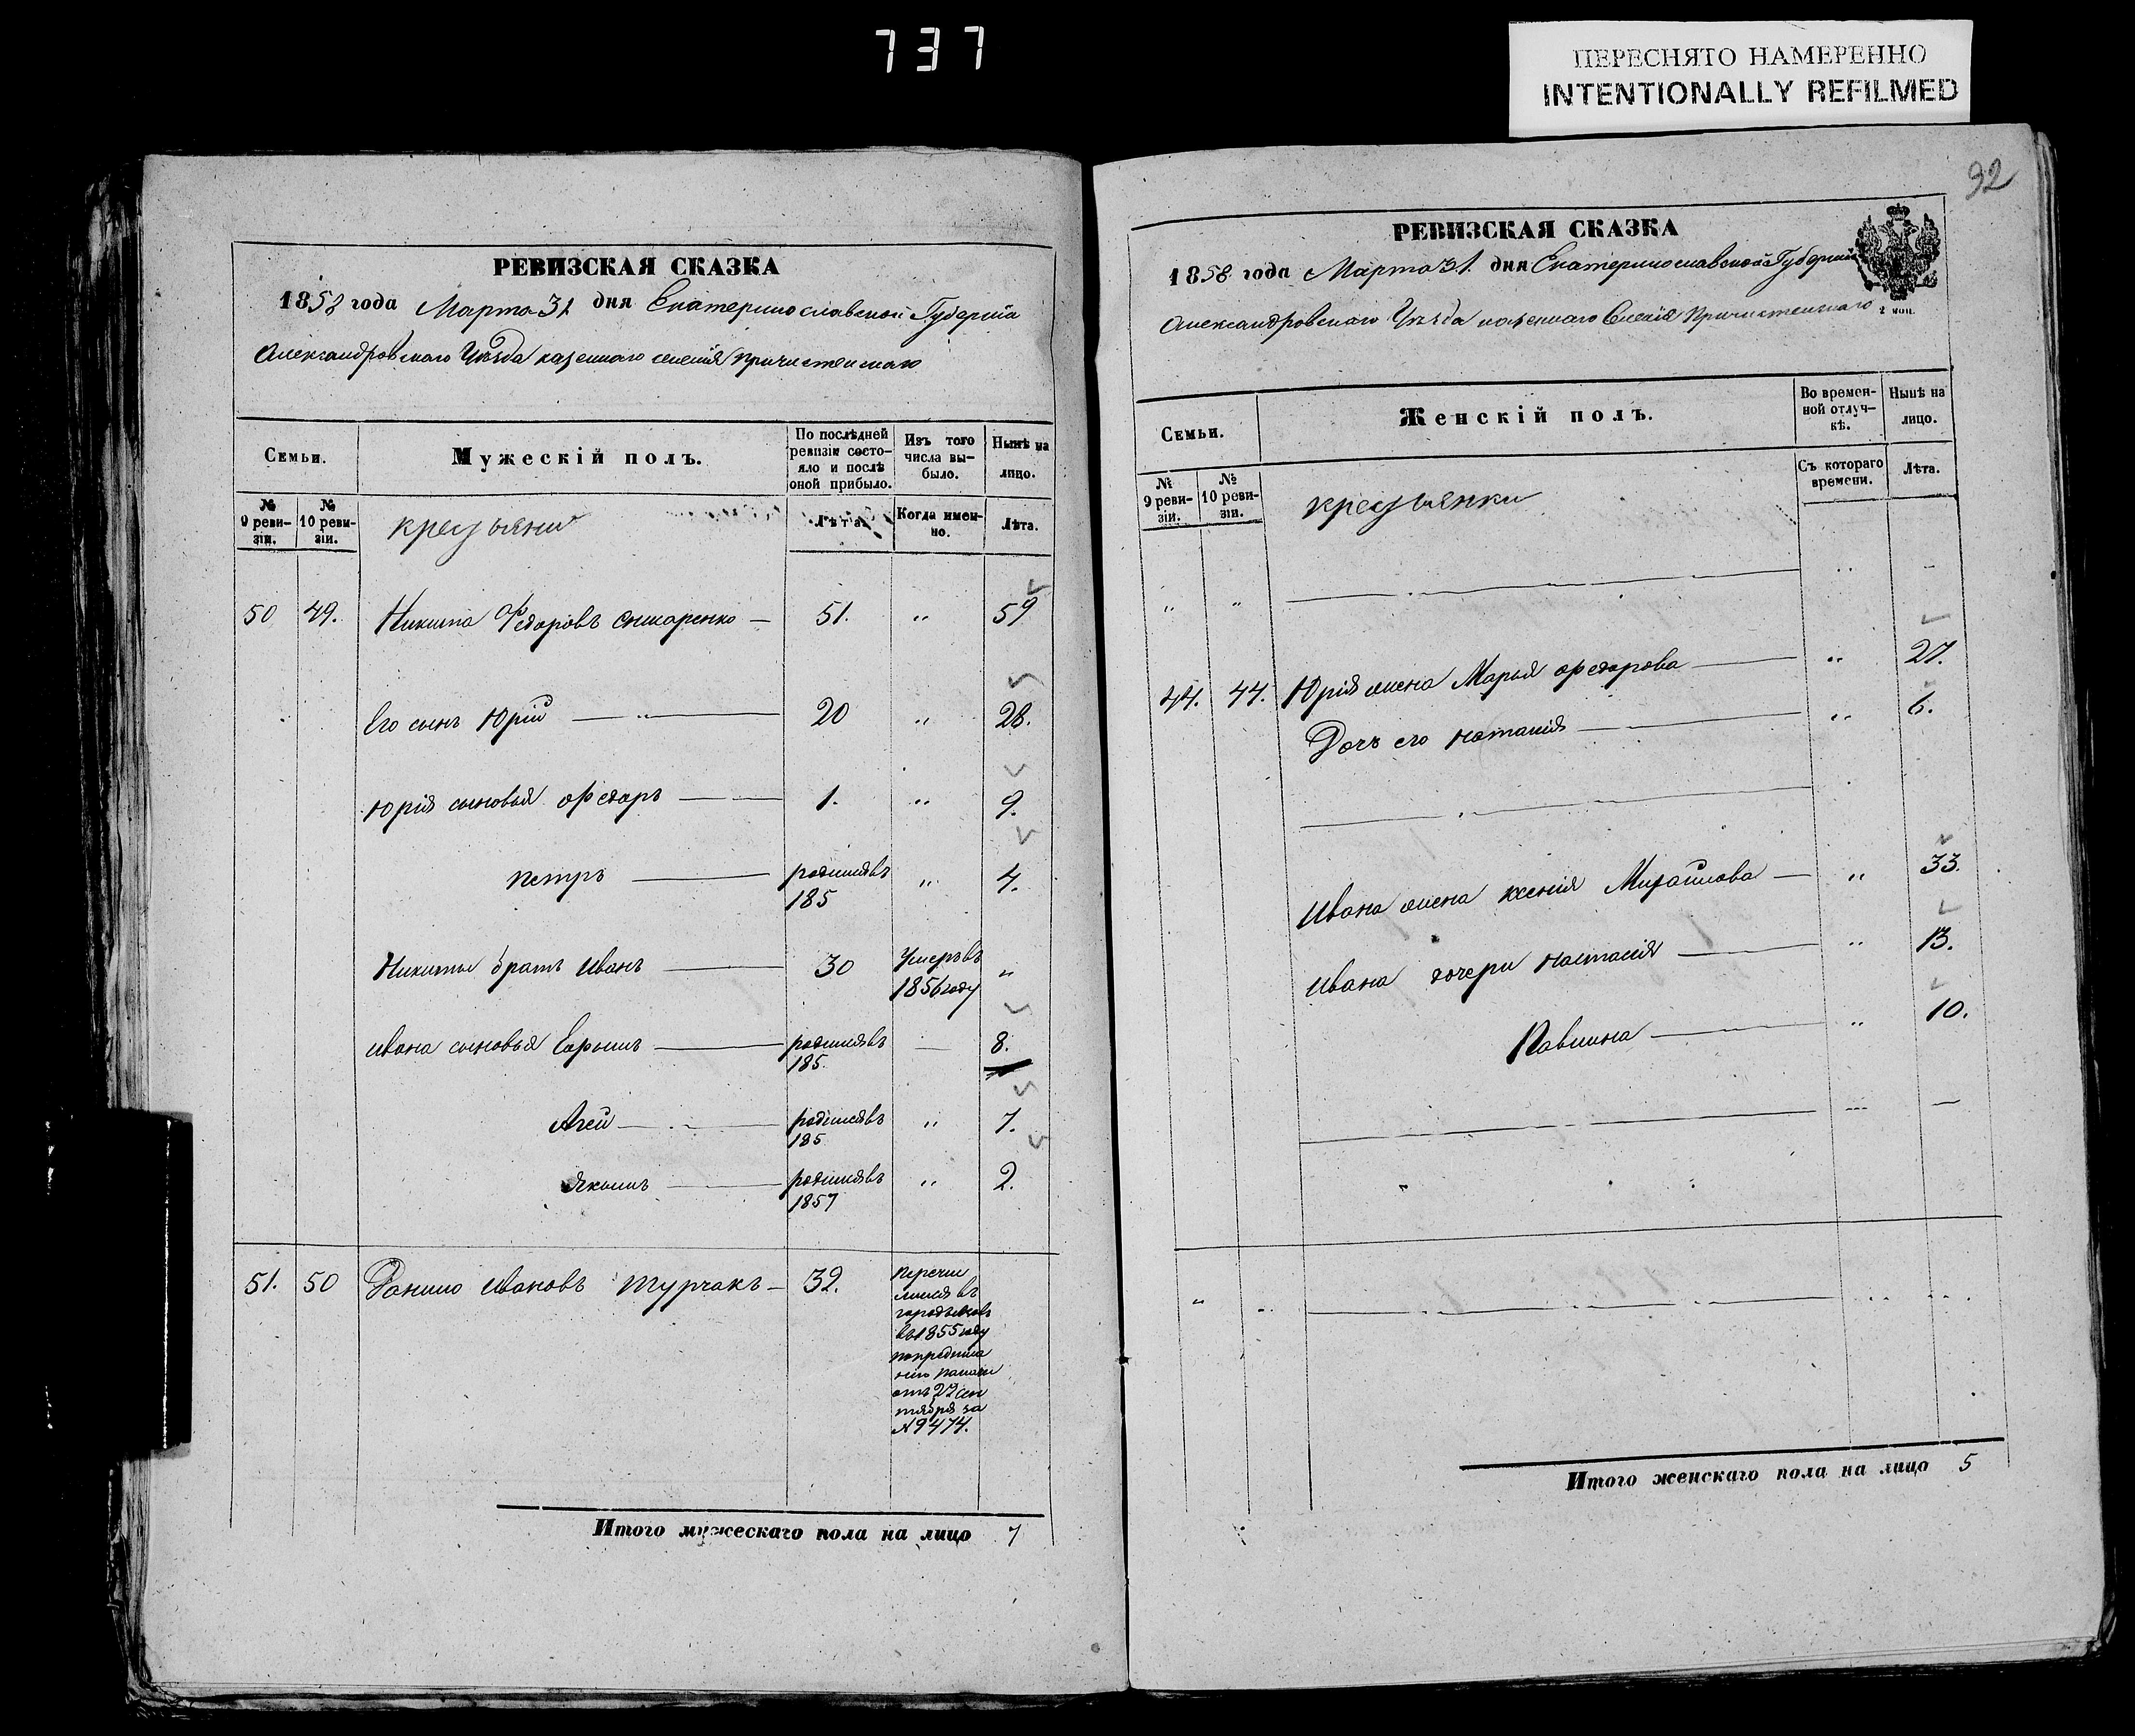 737
ПЕРЕСНЯТО НАМЕРЕННО
INTENTIONALLY REFILMED
РЕВИЗСКАЯ СКАЗКА
1858 года Марта 31 дня Екатеринославской Губерніи
Александровскаго Уѣзда казеннаго селенія Пречистенскаго
Семьи.
Мужескій полъ.
По послѣдней ревизіи состояло и послѣ оной прибыло.
Изъ того числа выбыло.
Нынѣ на лицо.
№ 9 ревизіи.
№ 10 ревизіи.
крестьяне
Лѣта.
Когда именно.
Лѣта.
50 49. Никита Федоровъ 51. " 59
Его сынъ Юрій — " — 20 " 28.
Юрія сыновья Федоръ — 1. " 9.
Петръ — родился въ 185 " 4.
Никиты братъ Иванъ — 30 Умеръ въ 1856 году "
Ивана сыновья — родился въ 185 — 8.
Агей — родился въ 185 " 7.
Якимъ — родился въ 1857 " 2.
51. 50 Данило Ивановъ Турчакъ — 32.
Перечи
слился въ
въ 1855 году
по предписа
нію палаты
отъ 22 сен
тября за
№ 9474.
Итого мужескаго пола на лицо 7
32
РЕВИЗСКАЯ СКАЗКА
1858 года Марта 31. дня Екатеринославской Губерніи
Александровскаго Уѣзда казеннаго Селенія Пречистенскаго
2 коп.
Семьи.
Женскій полъ.
Во временной отлучкѣ.
Нынѣ на лицо.
№ 9 ревизіи.
№ 10 ревизіи.
крестьянки
Съ котораго времени.
Лѣта.
44. 44. Юрія жена Марья Федорова — " 27.
Дочь его Наталія — " 6.
Ивана жена Ксенія Михайлова — " 33.
Ивана дочери Настасія — " 13.
Павлина — " 10.
Итого женскаго пола на лицо 5